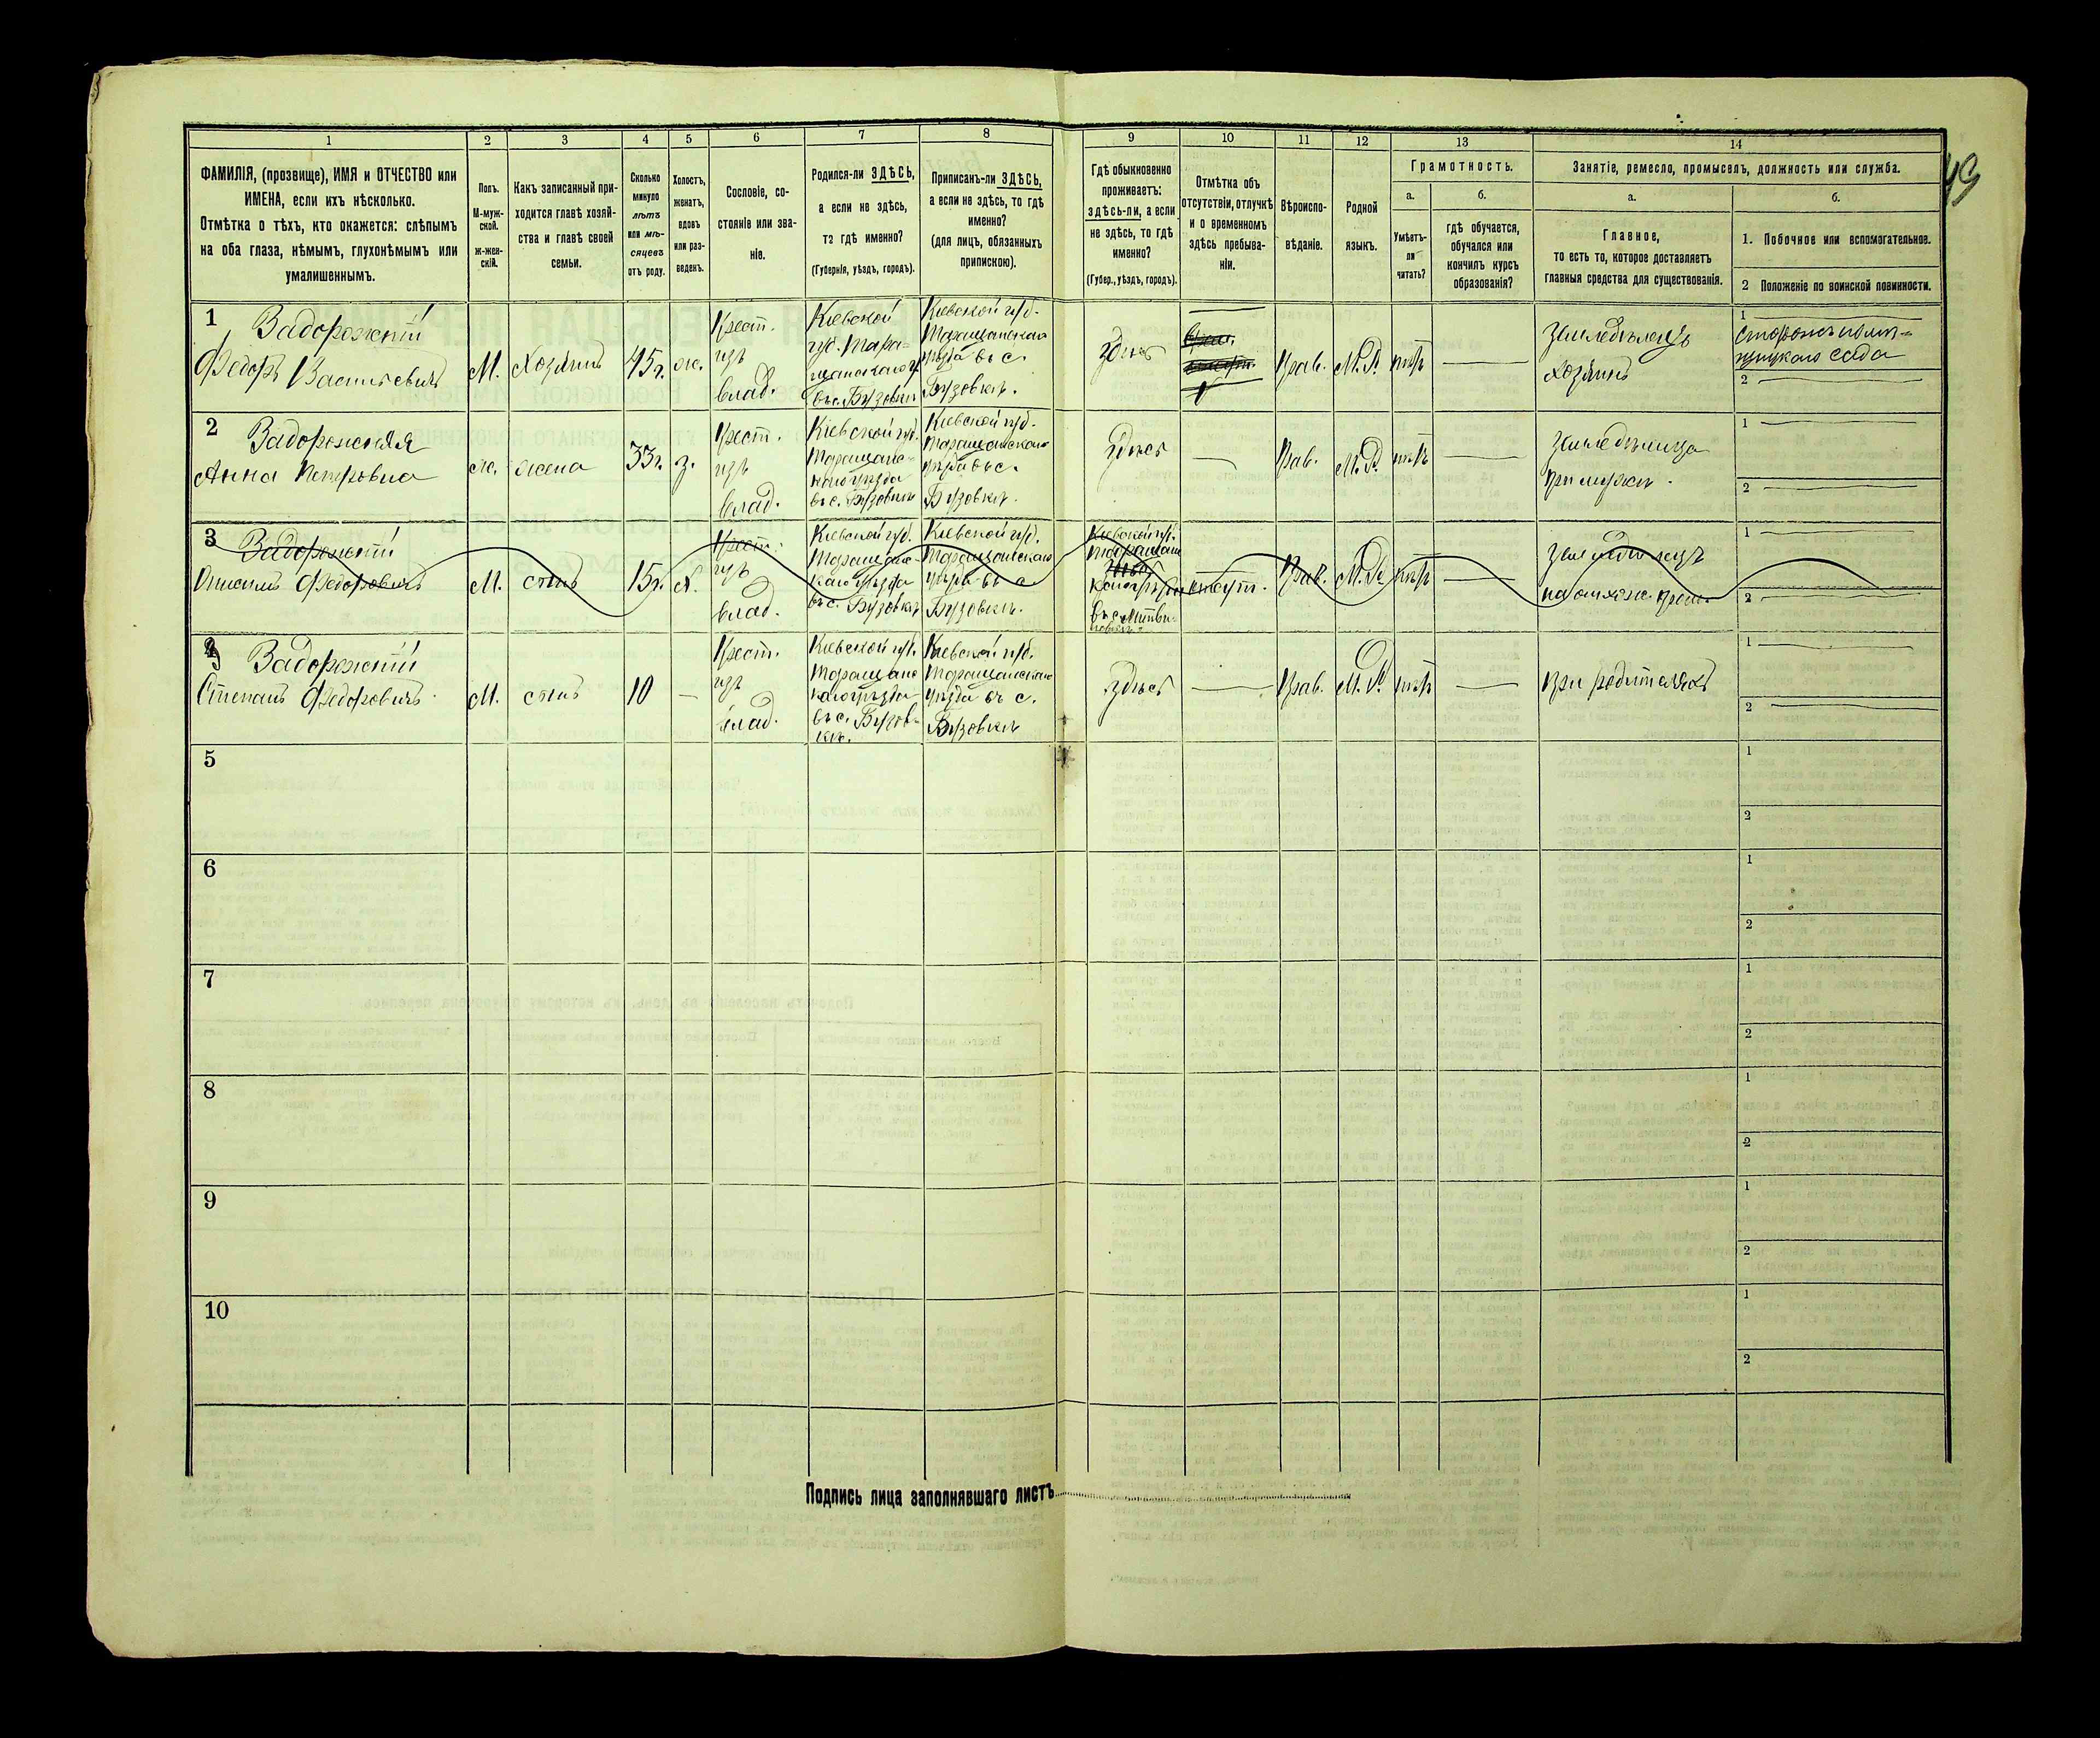 49
1
2
3
4
5
6
7
8
9
10
11
12
13
14
ФАМИЛІЯ, (прозвище), ИМЯ и ОТЧЕСТВО или
ИМЕНА, если ихъ нѣсколько.
Отмѣтка о тѣхъ, кто окажется: слѣпымъ
на оба глаза, нѣмымъ, глухонѣмымъ или
умалишеннымъ.
Полъ.
М-муж-
ской.
ж-жен-
скій.
Какъ записанный при-
ходится главѣ хозяй-
ства и главѣ своей
семьи.
Сколько
минуло
лѣтъ
или мѣ-
сяцевъ
отъ роду.
Холостъ,
женатъ,
вдовъ
или раз-
веденъ.
Сословіе, со-
стояніе или зва-
ніе.
Родился-ли ЗДѢСЬ,
а если не здѣсь,
то гдѣ именно?
(Губернія, уѣздъ, городъ).
Приписанъ-ли ЗДѢСЬ,
а если не здѣсь, то гдѣ
именно?
(для лицъ, обязанныхъ
припискою).
Гдѣ обыкновенно
проживаетъ:
здѣсь-ли, а если
не здѣсь, то гдѣ
именно?
(Губер., уѣздъ, городъ).
Отмѣтка объ
отсутствіи, отлучкѣ
и о временномъ
здѣсь пребыва-
ніи.
Вѣроиспо-
вѣданіе.
Родной
языкъ.
Грамотность.
а.
Умѣетъ-
ли
читать?
б.
гдѣ обучается,
обучался или
кончилъ курсъ
образованія?
Занятіе, ремесло, промыселъ, должность или служба.
а.
Главное,
то есть то, которое доставляетъ
главныя средства для существованія.
б.
1. Побочное или вспомогательное.
2 Положеніе по воинской повинности.
1
Задорожній
Федоръ Васильевичъ
М.
Хозяинъ
45 г.
ж.
Крест.
изъ
влад.
Кіевской
губ. Тара-
щанскаго у
въ с. Бузовки
Кіевской губ.
Таращанскаго
уѣзда въ с.
Бузовкѣ.
здѣсь
Прав.
М. Р.
нѣтъ
Земледѣлецъ
Хозяинъ
1
сада
2
2
Задорожняя
Анна Петровна
ж.
жена
33 г.
з.
Крест.
изъ
влад.
Кіевской губ.
Таращанс-
каго уѣзда
въ с. Бузовки
Кіевской губ.
Таращанскаго
уѣзда въ с.
Бузовкѣ.
здѣсь
Прав.
М. Р.
нѣтъ
Земледѣлица
при мужѣ.
1
2
3
Задорожній
Федоровичъ
М.
сынъ
15 г.
х.
Крест.
изъ
влад.
Кіевской губ.
Таращанс-
каго уѣзда
въ с. Бузовкѣ
Кіевской губ.
Таращанскаго
уѣзда въ с
Бузовкѣ.
Кіевской губ.
Таращанс
каго уѣзда
отсут.
Прав.
М. Р.
нѣтъ
Земледѣлецъ
1
2
4
Задорожній
Степанъ Федоровичъ.
М.
сынъ
10
Крест.
изъ
влад.
Кіевской губ.
Таращанс
каго уѣзда
въ с. Бузов-
кѣ.
Кіевской губ.
Таращанскаго
уѣзда въ с.
Бузовкѣ
здѣсь
Прав.
М. Р.
нѣтъ
при родителяхъ
1
2
5
1
2
6
1
2
7
1
2
8
1
2
9
1
2
10
1
2
Подпись лица заполнявшаго листъ